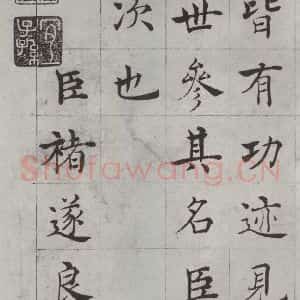 皆有功迹見
世參其名臣
次也
臣褚遂良
Shufawang.CN